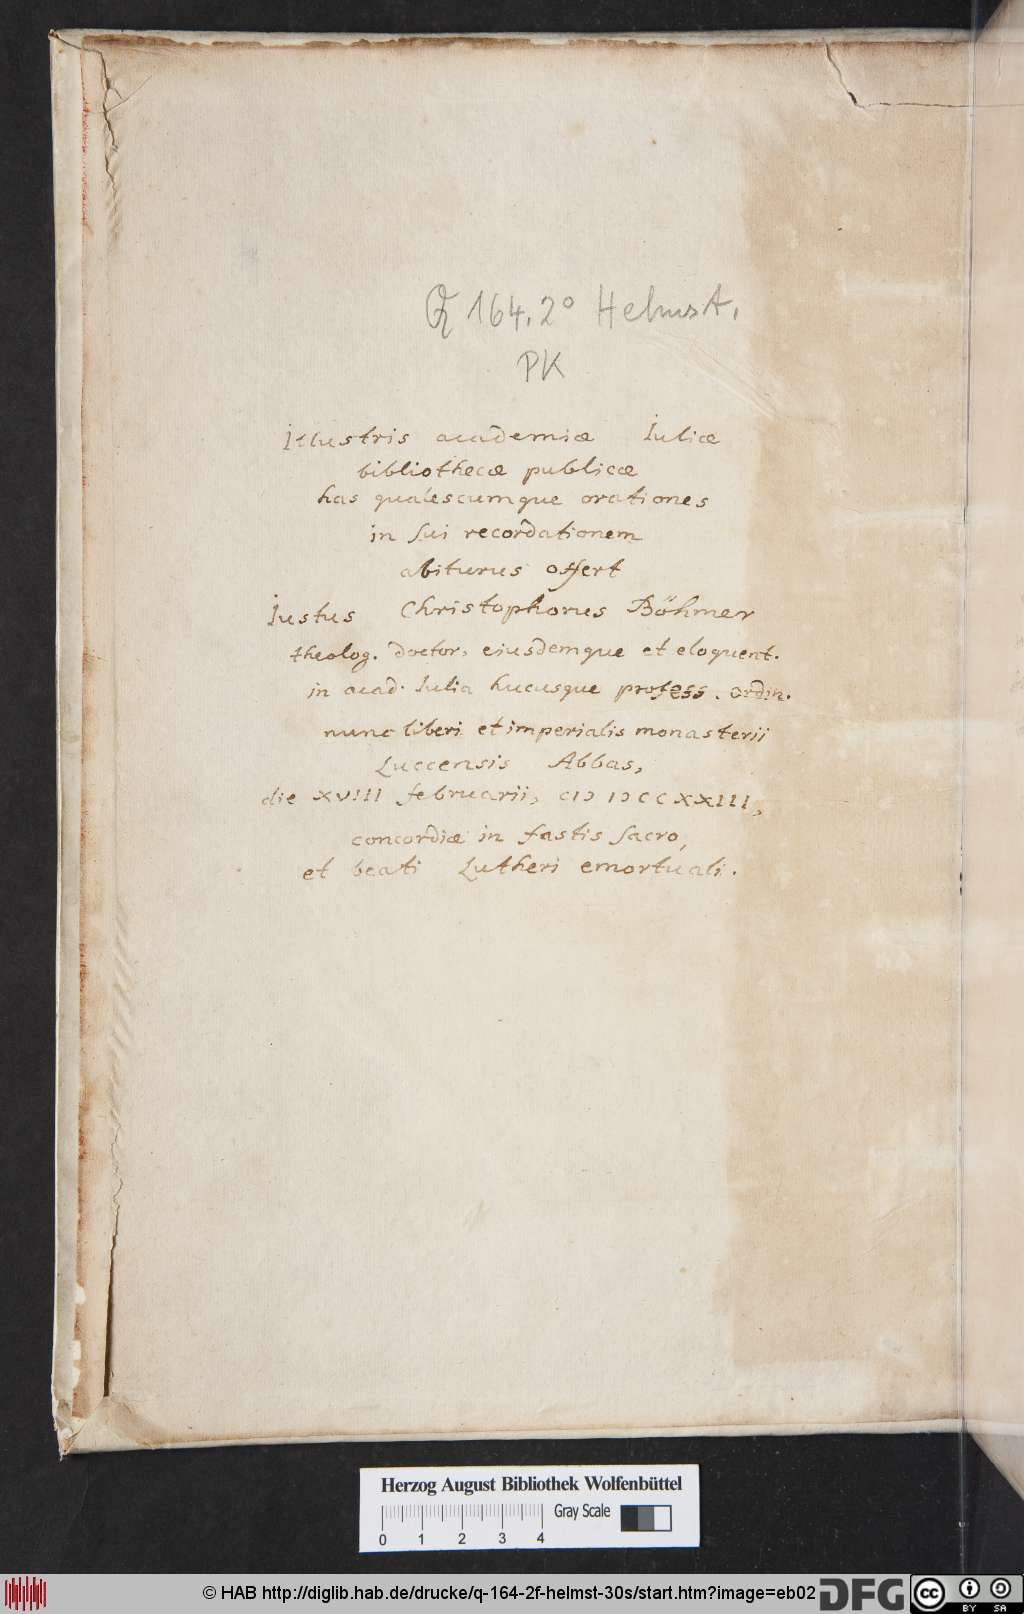 Q 164.2° Helmst.
PK
Illustris academiæ Iuliæ
bibliothecæ publicæ
has qualescumque orationes
in sui recordationem
abiturus offert
Iustus Christophorus Böhmer
theolog. doctor, eiusdemque et eloquent.
in acad. Iulia hucusque profess. ordin.
nunc liberi et imperialis monasterii
Luccensis Abbas,
die XVIII februarii, CIↃ IↃCCXXIII,
concordiæ in fastis sacro,
et beati Lutheri emortuali.
Herzog August Bibliothek Wolfenbüttel
Gray Scale
0 1 2 3 4
© HAB http://diglib.hab.de/drucke/q-164-2f-helmst-30s/start.htm?image=eb02
DFG
cc BY SA